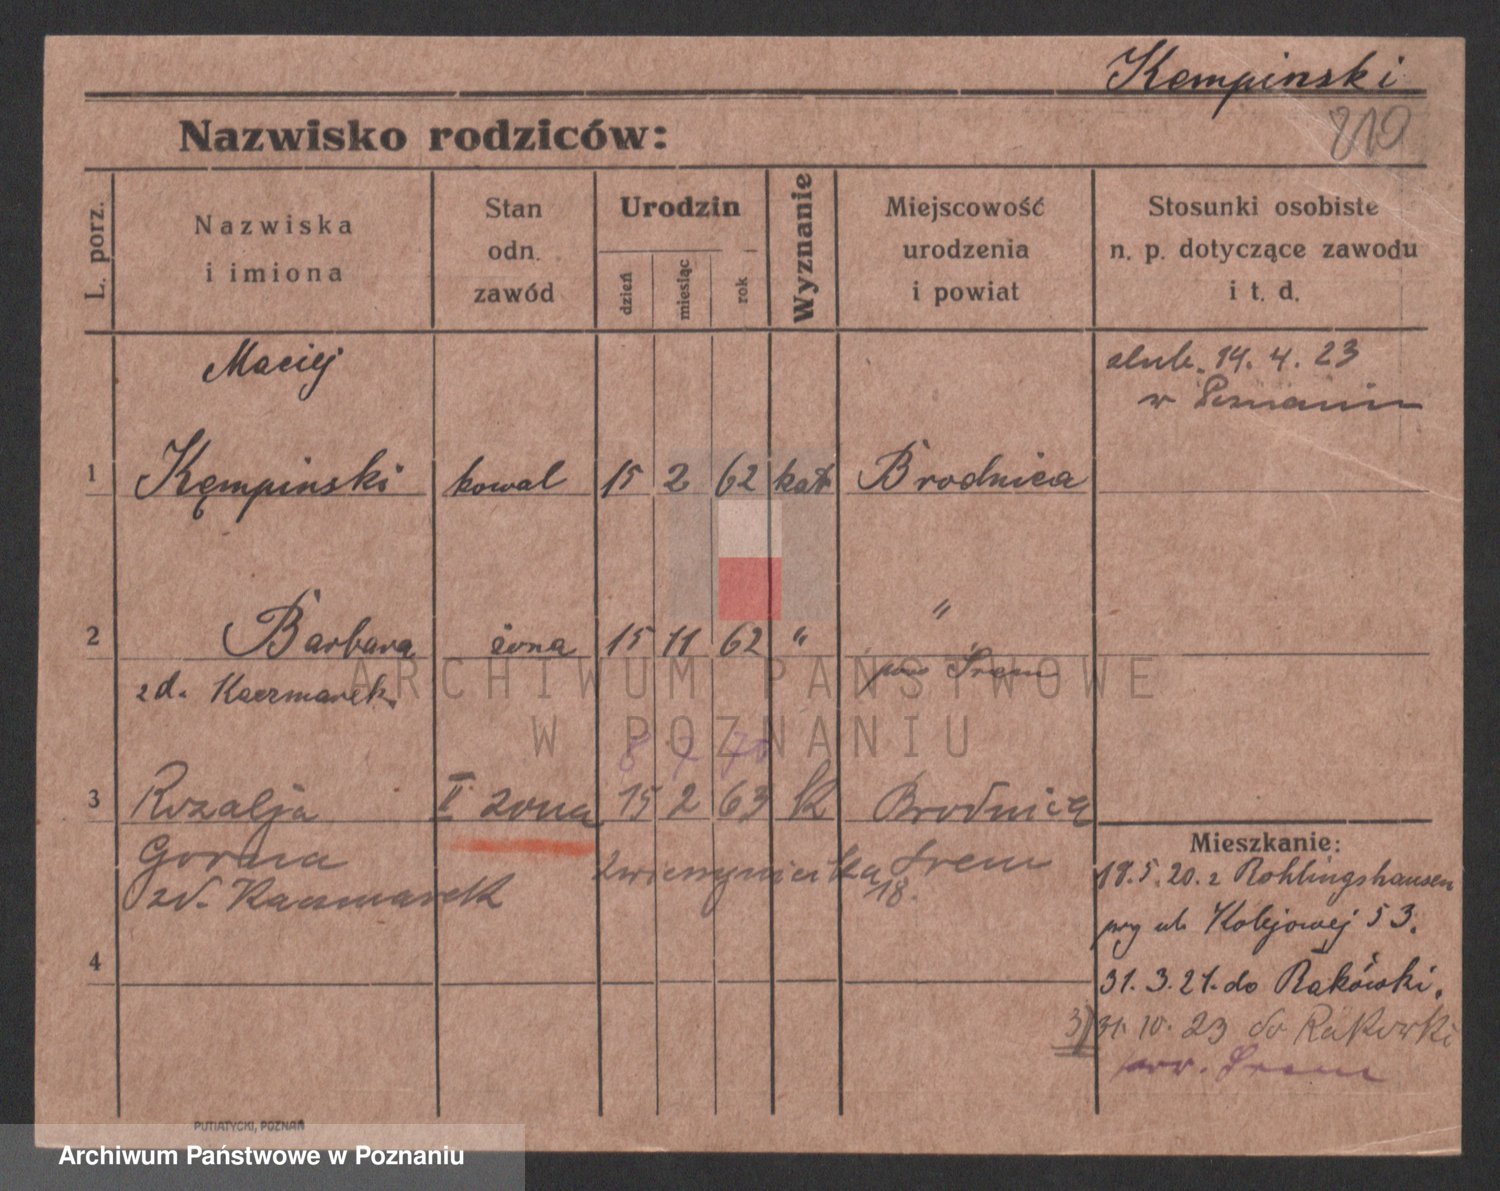 Kempinski
819
Nazwisko rodziców:
L. porz.
Nazwiska
i imiona
Stan
odn.
zawód
Urodzin
dzień
miesiąc
rok
Wyznanie
Miejscowość
urodzenia
i powiat
Stosunki osobiste
n. p. dotyczące zawodu
i t. d.
Maciej
ślub. 14. 4. 23
w Poznaniu
1 Kempinski kowal 15 2 62 kat Brodnica
"
2 Barbara żona 15 11 62 "
zd. Kaczmarek pow Śrem
ARCHIWUM PAŃSTWOWE
W POZNANIU
8 7 70
3 Rozalja II żona 15 2 63 k Brodnica
Gorna Śrem
zd. Kaczmarek 18.
4
Mieszkanie:
18. 5. 20. z Rohlingshausen
przy ul. Kolejowej 53.
31. 3. 21. do Rakówki.
3) 31. 10. 23 do Rakowki
pow. Śrem
PUTIATYCKI, POZNAŃ
Archiwum Państwowe w Poznaniu